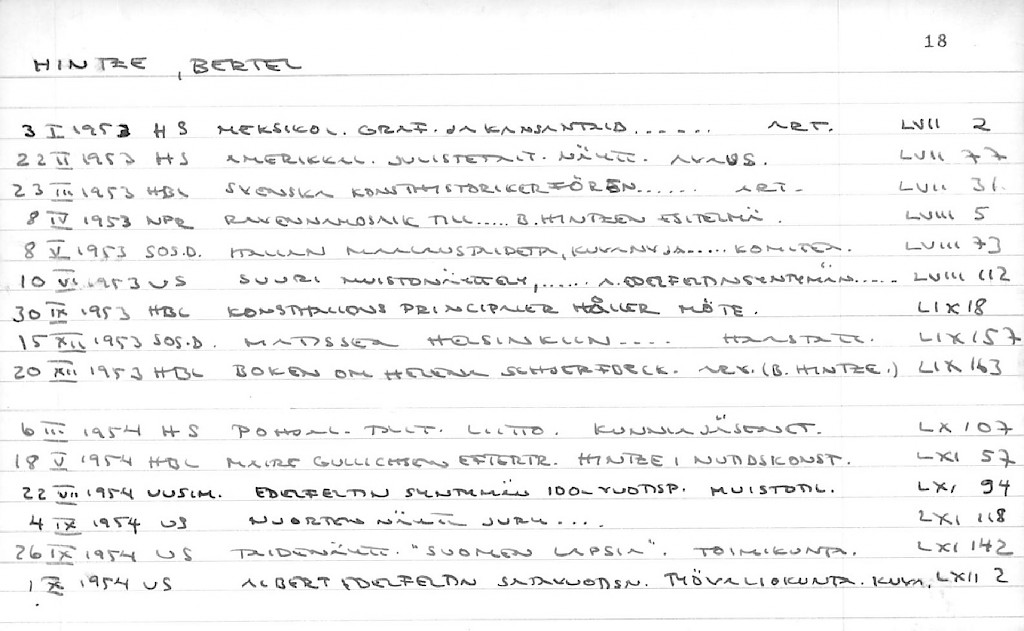 18
HINTZE, BERTEL
3 I 1953 HS MEKSIKOL. GRAF. JA KANSANTAID...... ART. LVII 2
22 II 1953 HS AMERIKKAL. JULISTETAIT. NÄYTT. AVAUS. LVII 77
23 III 1953 HBL SVENSKA KONSTHISTORIKERFÖREN...... ART. LVII 31.
8 IV 1953 NPR RAVENNAMOSAIK TILL..... B. HINTZEN ESITELMÄ. LVIII 5
8 V 1953 SOS.D. ITALIAN MAALAUSTAIDETA, KUVANVJA..... KOMITEA. LVIII 73
10 VI 1953 US SUURI MUISTONÄYTTELY,...... A. EDELFELTIN SYNTYMÄN..... LVIII 112
30 IX 1953 HBL KONSTHALLENS PRINCIPALER HÅLLER MÖTE. LIX 18
15 XII 1953 SOS.D. MATISSEA HELSINKIIN.... HAASTATT. LIX 157
20 XII 1953 HBL BOKEN OM HELENE SCHJERFBECK. ARV. (B. HINTZE.) LIX 163
6 III 1954 HS POHJAL. TAIT. LIITTO. KUNNIAJÄSENET. LX 107
18 V 1954 HBL MAIRE GULLICHSEN EFTERTR. HINTZE I NUTIDSKONST. LXI 57
22 VII 1954 UUSIM. EDELFELTIN SYNTYMÄN 100-VUOTISP. MUISTOTIL. LXI 94
4 IX 1954 US NUORTEN NÄYTT. JURY.... LXI 118
26 IX 1954 US TAIDENÄYTT. "SUOMEN LAPSIA". TOIMIKUNTA. LXI 142
1 X 1954 US ALBERT EDELFELTIN SATAVUOTISN. TYÖVALIOKUNTA. KUVA. LXII 2